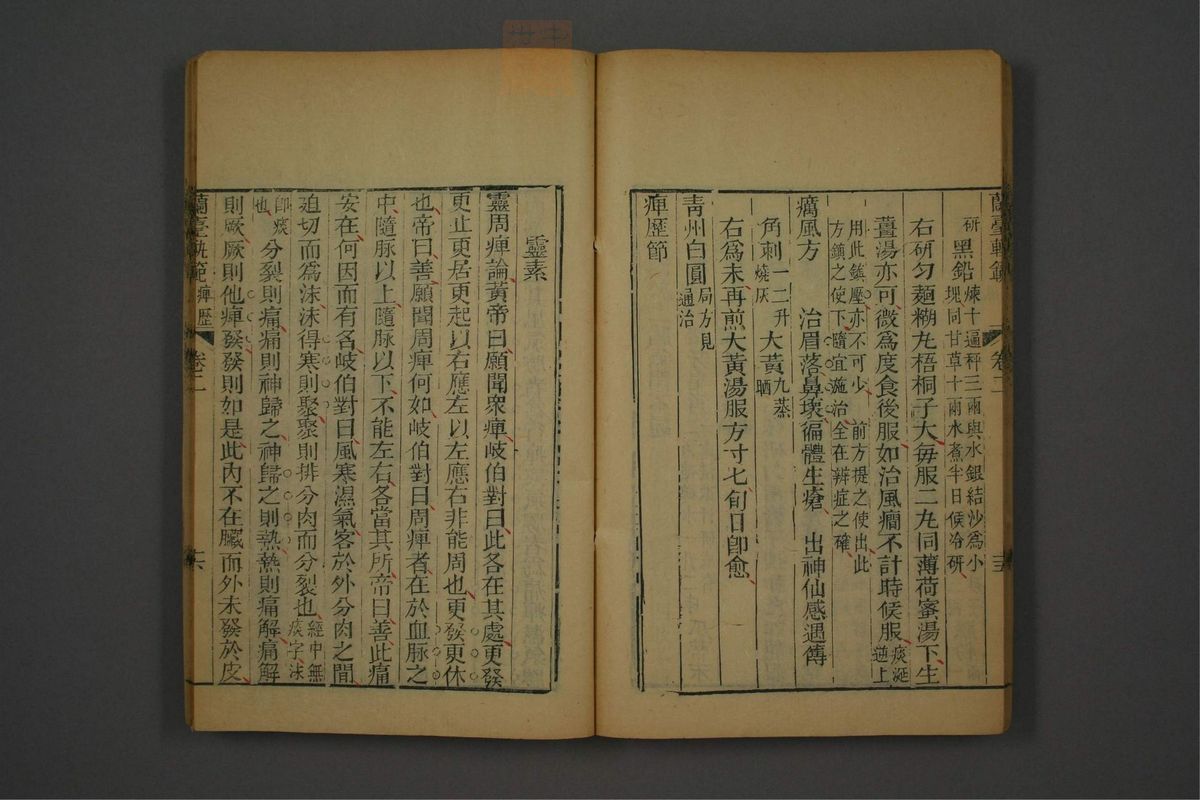 蘭臺軌範 卷二
研 黑鉛煉十遍秤三兩與水銀結沙為小塊同甘草十兩水煮半日候冷研
右研勻麵糊丸梧桐子大每服二九同薄荷蜜湯下生
薑湯亦可微為度食後服如治風癇不計時候服痰涎逆上
用此鎮壓亦不可少 前方提之使出此方鎮之使下隨宜施治全在辨症之確
癘風方 治眉落鼻壞徧體生瘡 出神仙感遇傳
角刺一二升燒灰 大黃九蒸晒
右為末再煎大黃湯服方寸七旬日即愈
青州白圓局方見通治
痺歷節
靈素
靈周痺論黃帝曰願聞眾痺岐伯對曰此各在其處更發
更止更居更起以右應左以左應右非能周也更發更休
也帝曰善願聞周痺何如岐伯對曰周痺者在於血脉之
中隨脉以上隨脉以下不能左右各當其所帝曰善此痛
安在何因而有名岐伯對曰風寒濕氣客於外分肉之間
迫切而為沫沫得寒則聚聚則排分肉而分裂也經中無痰字沫
即痰也 分裂則痛痛則神歸之神歸之則熱熱則痛解痛解
則厥厥則他痺發發則如是此內不在臟而外未發於皮
蘭臺軌範 痺歷 卷二 十六